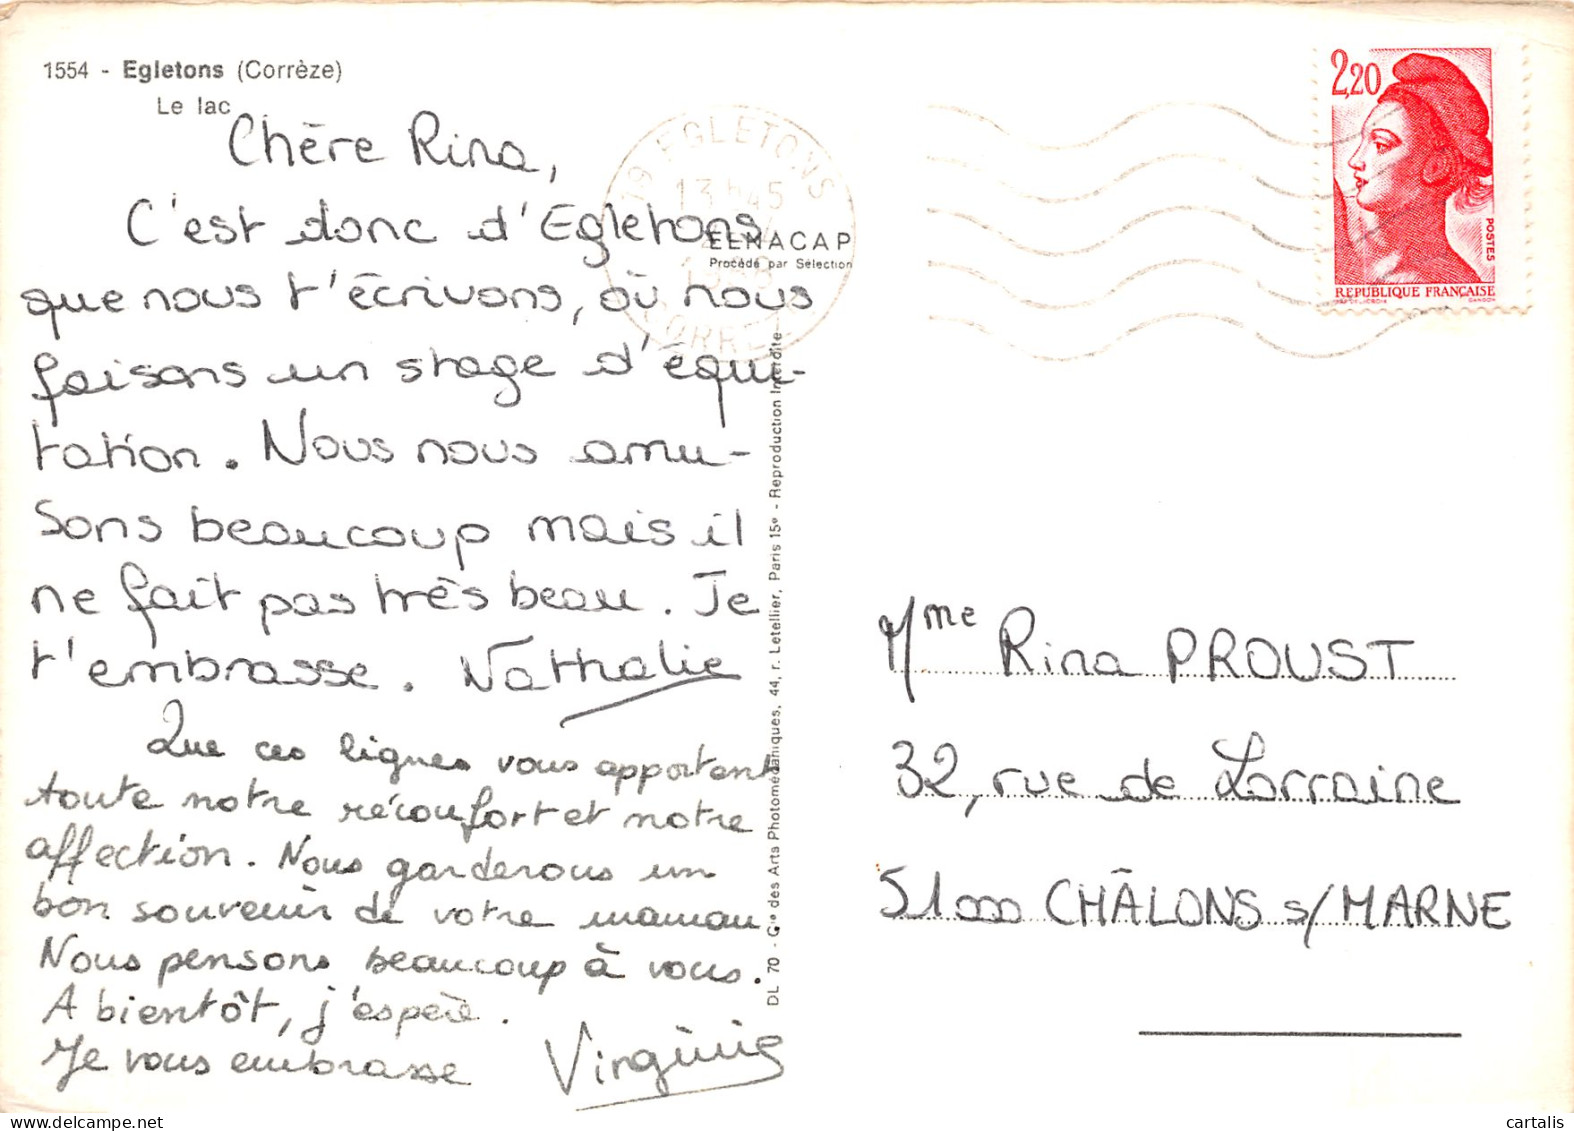 1554 - Egletons (Corrèze)
Le lac
Chère Rina,
C'est donc d'Egletons
que nous t'écrivons, où nous
faisons un stage d'équi-
tation. Nous nous amu-
sons beaucoup mais il
ne fait pas très beau. Je
t'embrasse. Nathalie
Que ces lignes vous apportent
toute notre réconfort et notre
affection. Nous garderons un
bon souvenir de votre maman.
Nous pensons beaucoup à vous.
A bientôt, j'espère.
Je vous embrasse Virginie
19 EGLETONS
13H45
CORREZE
ELNACAP
Procédé par Sélection
DL 70 - Cie des Arts Photomécaniques, 44, r. Letellier, Paris 15e - Reproduction Interdite
2,20
POSTES
REPUBLIQUE FRANÇAISE
GANDON
Mme Rina PROUST
32, rue de Lorraine
51000 CHÂLONS s/MARNE
cartalis
delcampe.net